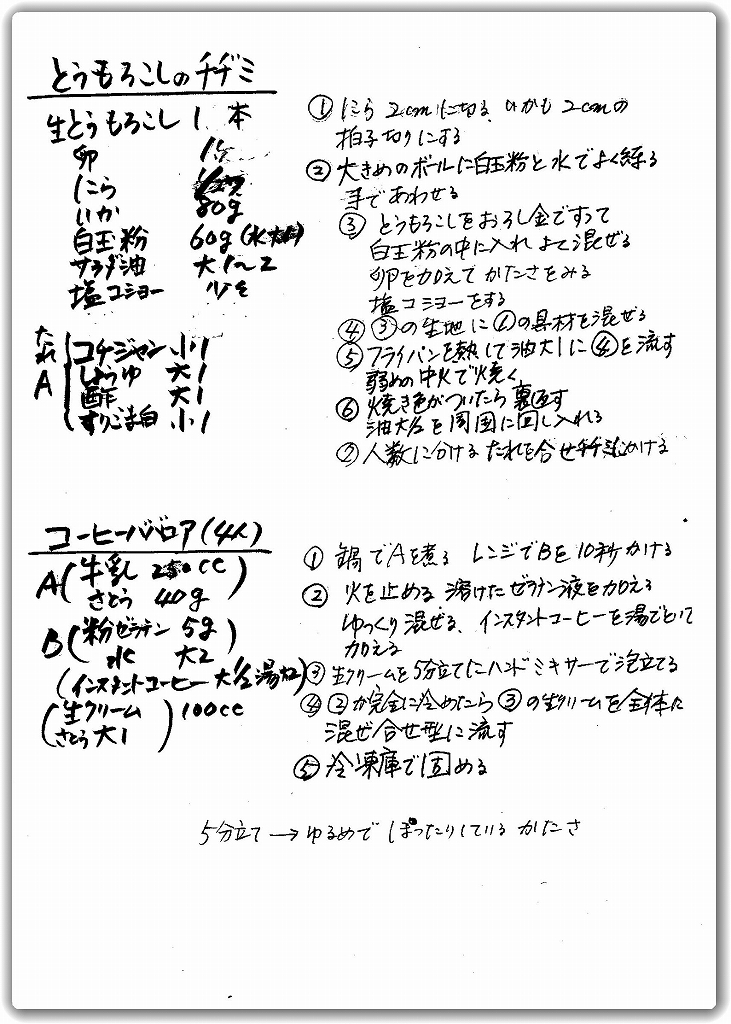 とうもろこしのチヂミ
生とうもろこし 1 本
卵 1ヶ
にら
いか 80g
白玉粉 60g (水
サラダ油 大1〜2
塩コショー 少々
たれ
A
コチジャン 小1
しょうゆ 大1
酢 大1
すりごま白 小1
① にら 2cmに切る、いかも 2cmの
拍子切りにする
② 大きめのボールに白玉粉と水でよく練る
手であわせる
③ とうもろこしをおろし金ですって
白玉粉の中に入れ よく混ぜる
卵を加えて かたさをみる
塩コショーをする
④ ③の生地に①の具材を混ぜる
⑤ フライパンを熱して油大1に④を流す
弱めの中火で焼く
⑥ 焼き色がついたら裏返す
油大1/2を周囲に回し入れる
⑦ 人数に分ける たれを合せ かける
コーヒーババロア(4人)
A(牛乳 250cc
さとう 40g)
B(粉ゼラチン 5g
水 大2)
(インスタントコーヒー 大1/2 湯大2)
(生クリーム 100cc
さとう 大1)
① 鍋でAを煮る レンジでBを10秒かける
② 火を止める 溶けたゼラチン液を加える
ゆっくり混ぜる、インスタントコーヒーを湯でといて
加える
③ 生クリームを5分立てにハンドミキサーで泡立てる
④ ②が完全に冷めたら③の生クリームを全体に
混ぜ合せ型に流す
⑤ 冷凍庫で固める
5分立て → ゆるめで ぽったりしている かたさ